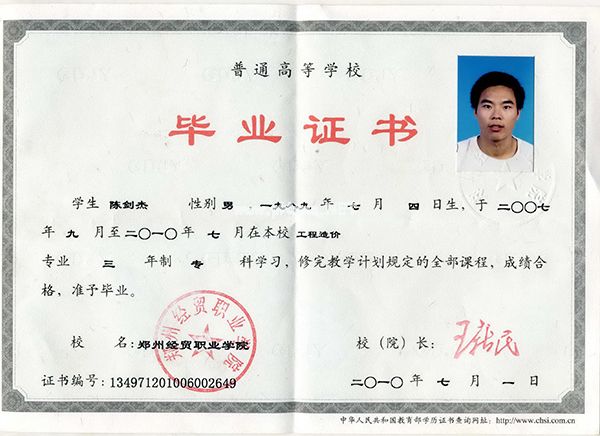 普通高等学校
毕业证书
学生 陈剑杰 性别 男，一九八九年 七 月 四 日生，于二〇〇七
年 九 月至二〇一〇年 七 月在本校 工程造价
专业 三 年制 专 科学习，修完教学计划规定的全部课程，成绩合
格，准予毕业。
校 名：郑州经贸职业学院 校（院）长：
郑州经贸职业学院
证书编号：134971201006002649 二〇一〇年 七 月 一 日
中华人民共和国教育部学历证书查询网址：http://www.chsi.com.cn